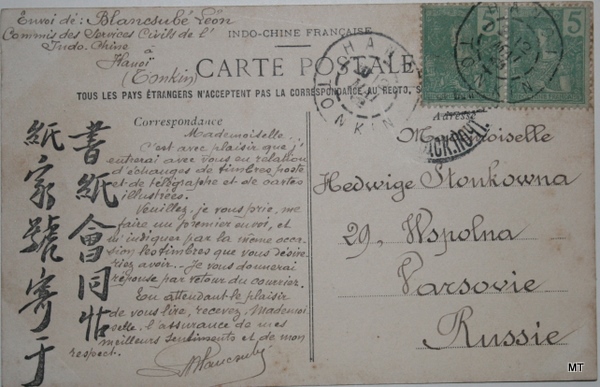 Envoi de: Blancsubé Léon
Commis des Services Civils de l'
Indo.Chine
à
Hanoï
(Tonkin)
INDO-CHINE FRANÇAISE
CARTE POSTALE
TOUS LES PAYS ÉTRANGERS N'ACCEPTENT PAS LA CORRESPONDANCE AU RECTO, S
5
5
HANOI
TONKIN
HANOI
TONKIN
Correspondance
Mademoiselle.
C'est avec plaisir que j'
entrerai avec vous en relation
d'échanges de timbres poste
et de télégraphe et de cartes
illustrées.
Veuillez, je vous prie, me
faire un premier envoi, et
m'indiquer par la même occa-
sion les timbres que vous désire-
riez avoir. Je vous donnerai
réponse par retour du courrier.
En attendant le plaisir
de vous lire, recevez, Mademoi-
selle, l'assurance de mes
meilleurs sentiments et de mon
respect.
Blancsubé
書紙會同帖
紙家號寄于
Adresse
Mademoiselle
Hedwige Stonkowna
29, Wspolna
Varsovie
Russie
MT